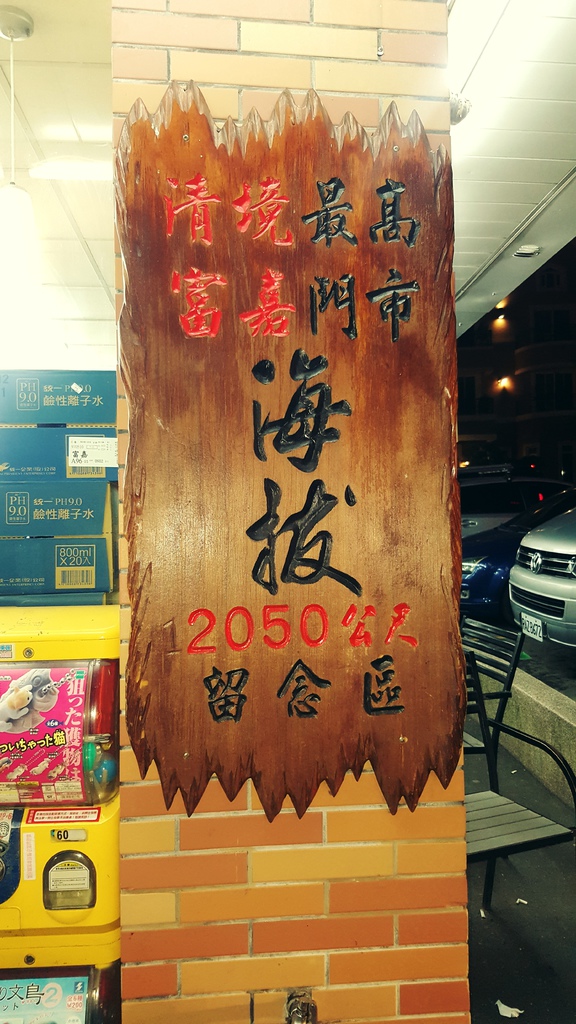 清境最高
富嘉門市
海
拔
2050公尺
留念區
PH
9.0
統一 PH9.0
鹼性離子水
富嘉
統一 PH9.0
鹼性離子水
800ml
X20入
狙った獲物は
ついちゃった猫
全6種
60
文鳥2